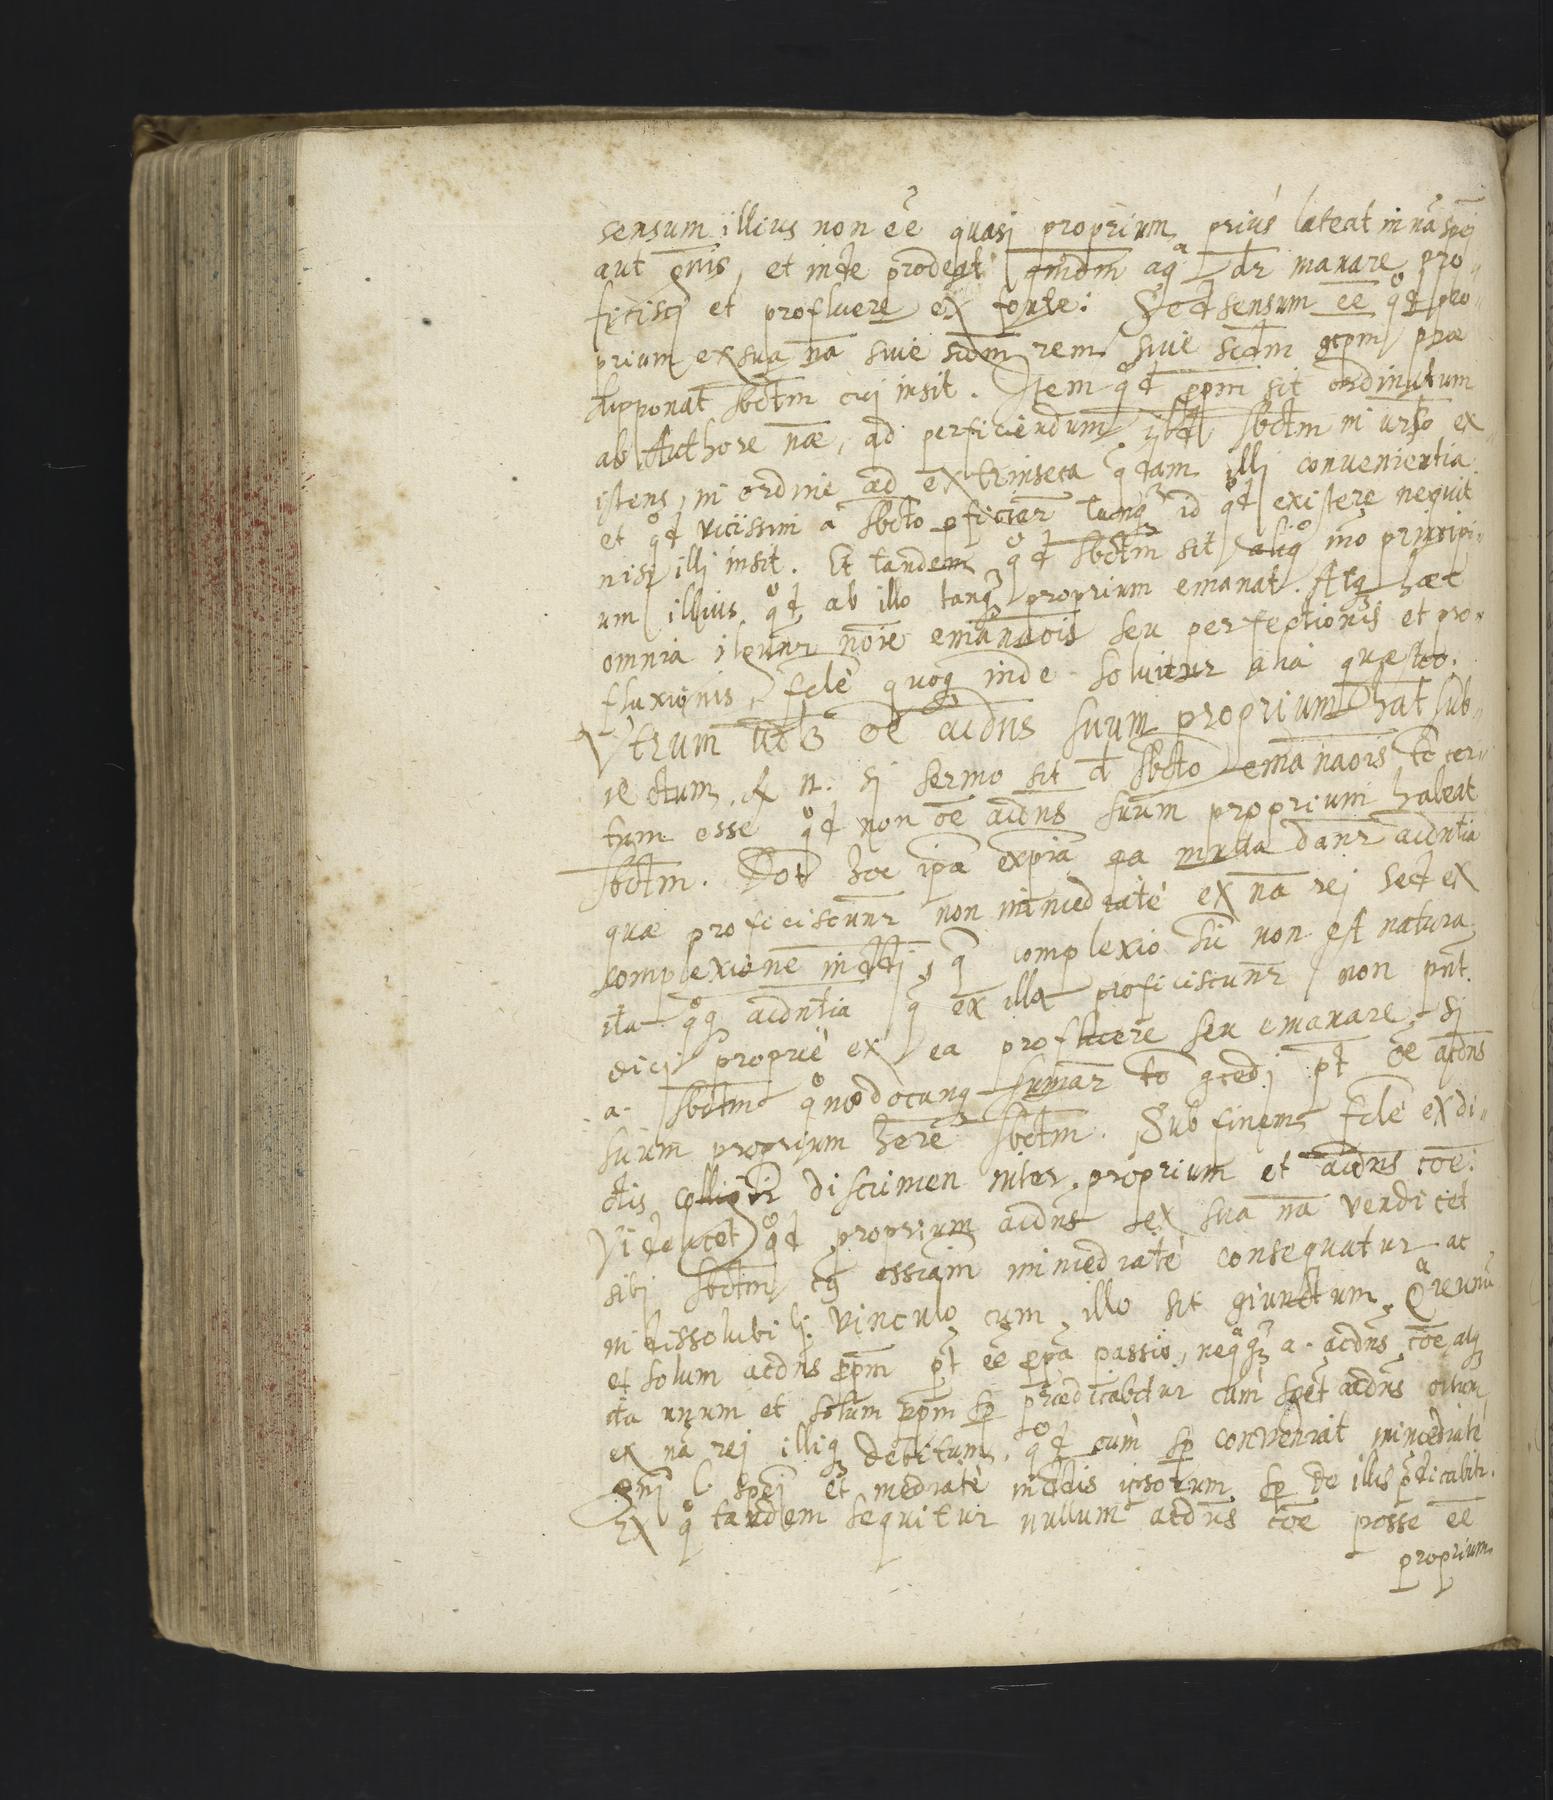 sensum illius non eē quasi proprium prius lateat in nā spēj
aut gnis, et inde prodeat qmdm aqª dr manare pro-
ficiscj et profluere ex fonte: Sed sensum eē qd pro-
prium ex sua nā siue scdm rem siue scdm gcpm præ
supponat sbctm cuj insit. Item qd ppm sit ordinatum
ab Authore næ, ad perficiendum sbctm in urso ex-
istens, in ordine ad extrinseca qdam illj convenientia
et qd vicissim a sbcto pficiar tanq id qd existere nequit
nisj illj insit. Et tandem qd sbctm sit aliqº mo principi-
um illius qd ab illo tanq proprium emanat. Atq hæc
omnia iunr noie emanaois seu perfectionis et pro-
fluxionis, fclè quoq inde soluitur alia quæstio.
Vtrum vdz oē acdns suum proprium hat sub-
iectum. & n. sj sermo sit d sbcto emanaois to cer-
tum esse qd non oē acdns suum proprium habeat
sbctm. Dot hoc ipā expiā qa mlta danr acdntia
quæ proficiscunr non immediatè ex nā rej sed ex
complexione inddj, q complexio sic non est natura
ita qq acdntia q ex illa proficiscunr non pnt
dicj propriè ex ea profluere seu emanare. Sj
a. sbctm qmodocunq sumar to gcedj pt oē acdns
suum proprium here sbctm. Sub finem fclè ex di-
ctis colligir discrimen inter proprium et acdns coe.
Videlicet qd proprium acdns ex sua nā vendicet
sibj sbctm cq essiam immediatè consequatur ac
indissolubilj vinculo cum illo sit giunctum. Qre unū
et solum acdns ppm pt eē ppa passio, neqq a. acdns coe atq
ita unum et solum ppm sp prædicabitur cum sbcti acdns ortum
ex nā rej illiq debitum, qd cum sp conveniat immediatè
gnj l. spēj et mediatè inddis ipsorum sp de illis pdicabitr.
Ex qº tandem sequitur nullum acdns coe posse eē
proprium.